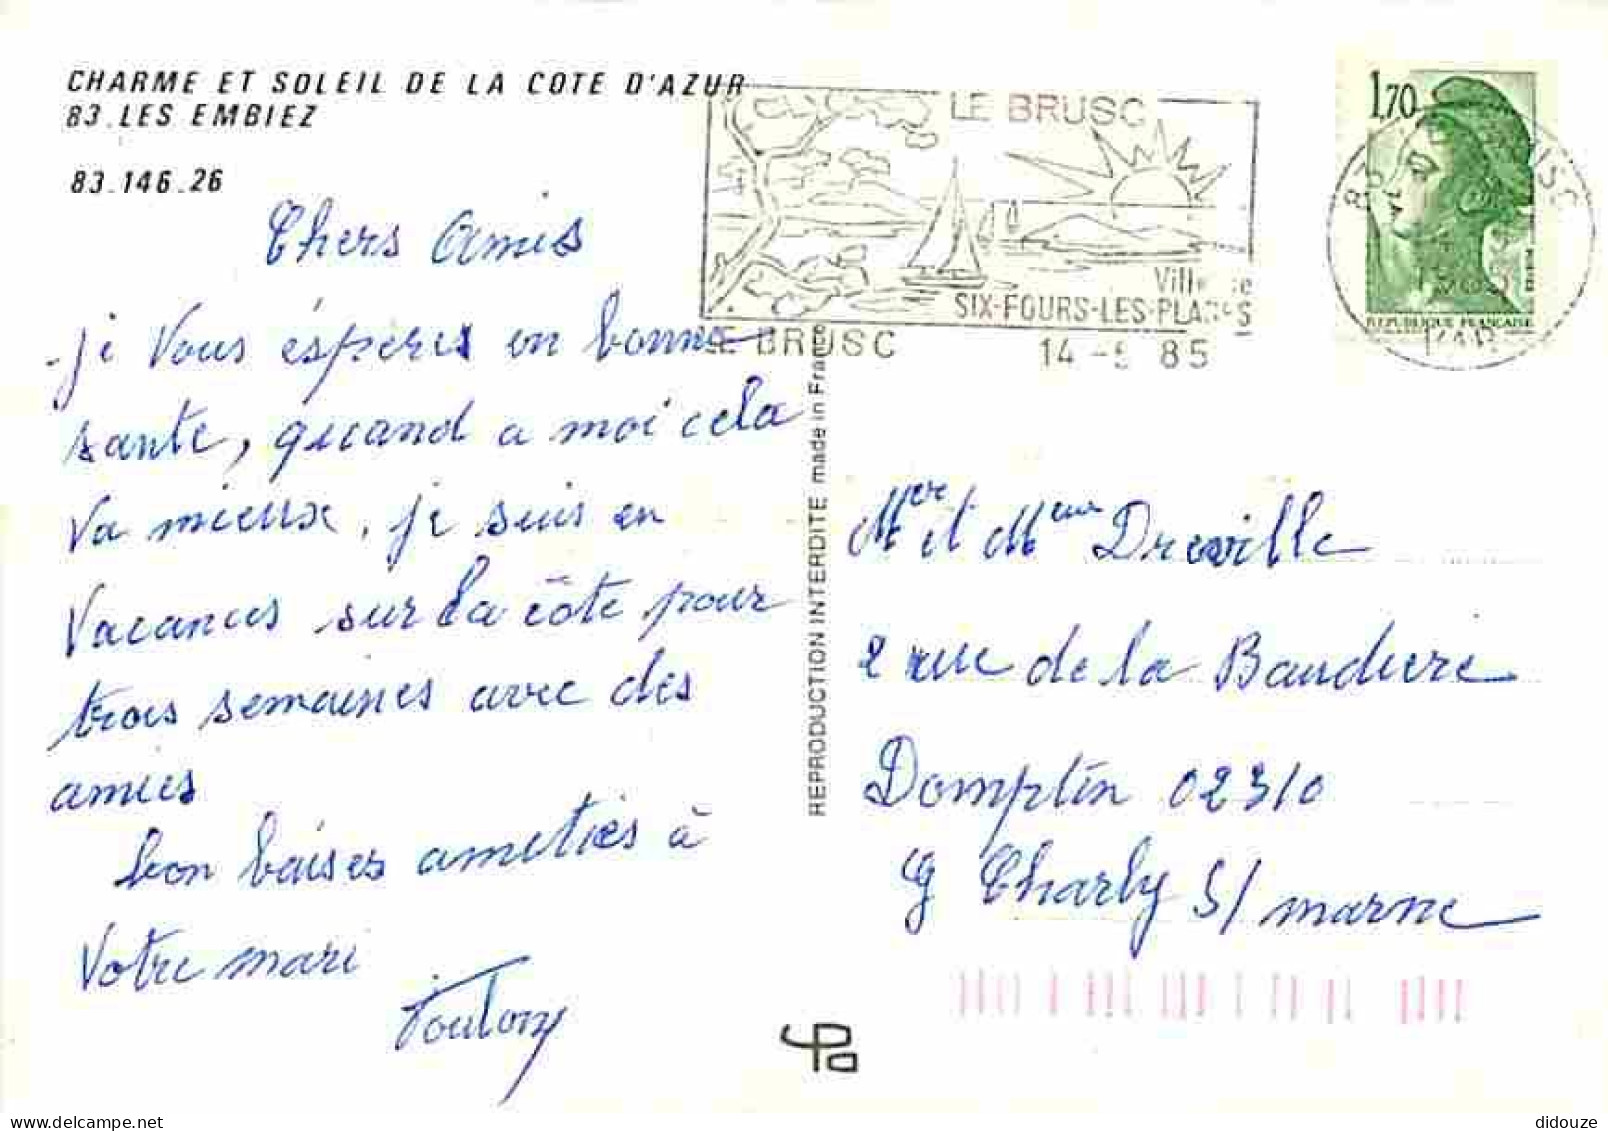 CHARME ET SOLEIL DE LA COTE D'AZUR
83. LES EMBIEZ
83.146.26
Chers amis
je vous éspères en bonne
sante, quand a moi cela
va mieux, je suis en
vacances sur la côte pour
trois semaines avec des
amies
bon baises ametiés à
votre mari
LE BRUSC
Ville de
SIX-FOURS-LES-PLAGES
LE BRUSC
14 -5 85
1,70
REPUBLIQUE FRANÇAISE
VAR
REPRODUCTION INTERDITE made in France
Mer et Meme Dreville
2 rue de la Baudiere
Domptin 02310
Charly S/ marne
didouze